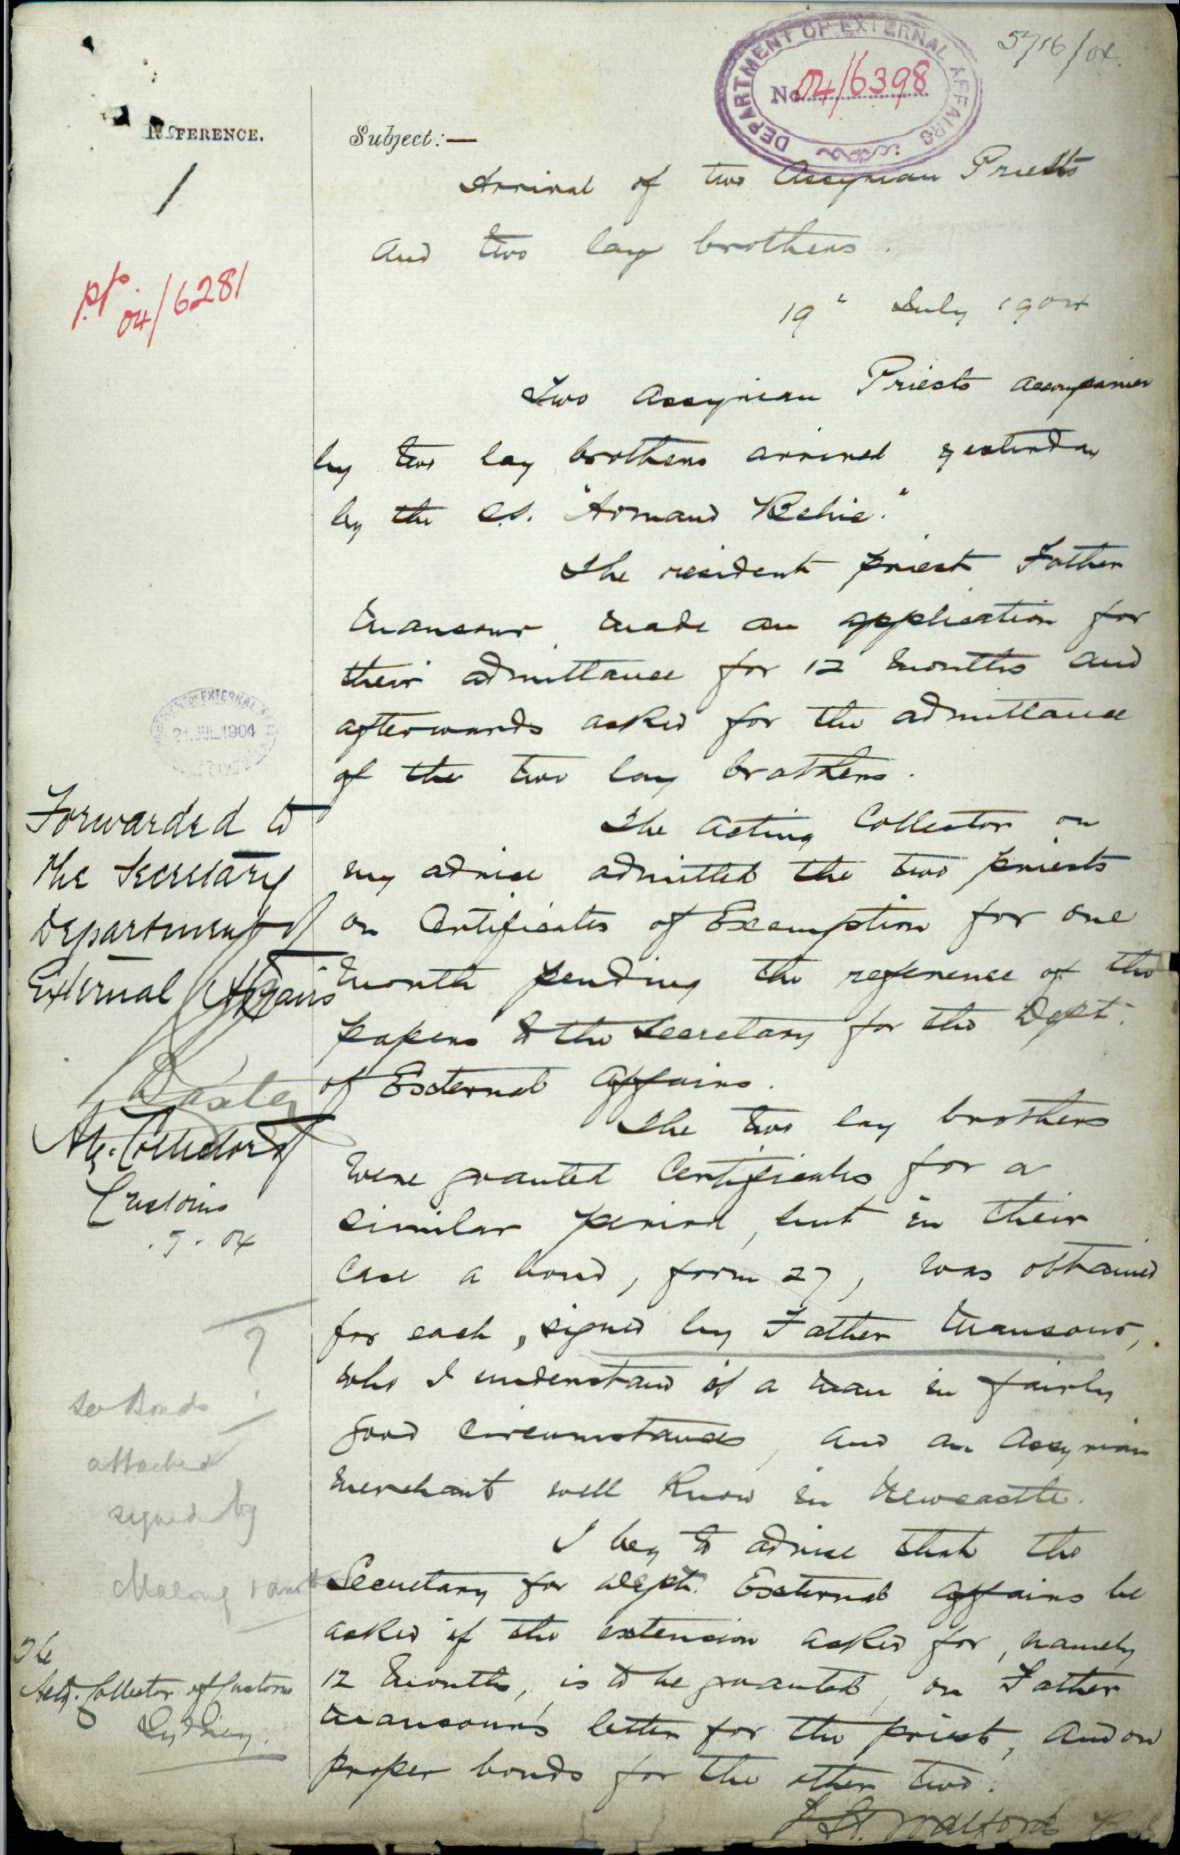 5716/04
DEPARTMENT OF EXTERNAL AFFAIRS
No 04/6398
REFERENCE.
Subject:—
1
Arrival of two Assyrian Priests
and two lay brothers.
p.p. 04/6281
19" July 1904
Two Assyrian Priests accompanied
by two lay brothers arrived yesterday
by the s.s. "Armand Behic."
The resident priest Father
Mansour made an application for
their admittance for 12 months and
afterwards asked for the admittance
of the two lay brothers.
The Acting Collector on
my advice admitted the two priests
on Certificates of Exemption for one
month pending the reference of the
papers to the Secretary for the Dept.
of External Affairs.
The two lay brothers
were granted Certificates for a
similar period, but in their
case a bond, form 27, was obtained
for each, signed by Father Mansour,
who I understand is a man in fairly
good circumstances, and an Assyrian
merchant well know in Newcastle.
I beg to advise that the
Secretary for Dept. External Affairs be
asked if the extension asked for, namely
12 months, is to be granted, on Father
Mansour's letter for the priest, and on
proper bonds for the other two.
EXTERNAL
21 JUL 1904
Forwarded to
the Secretary
Department of
External Affairs
Baxter
Atg. Collector of
Customs
.7.04
?
See Bonds
attached
signed by
The
Actg. Collector of Customs
Sydney.